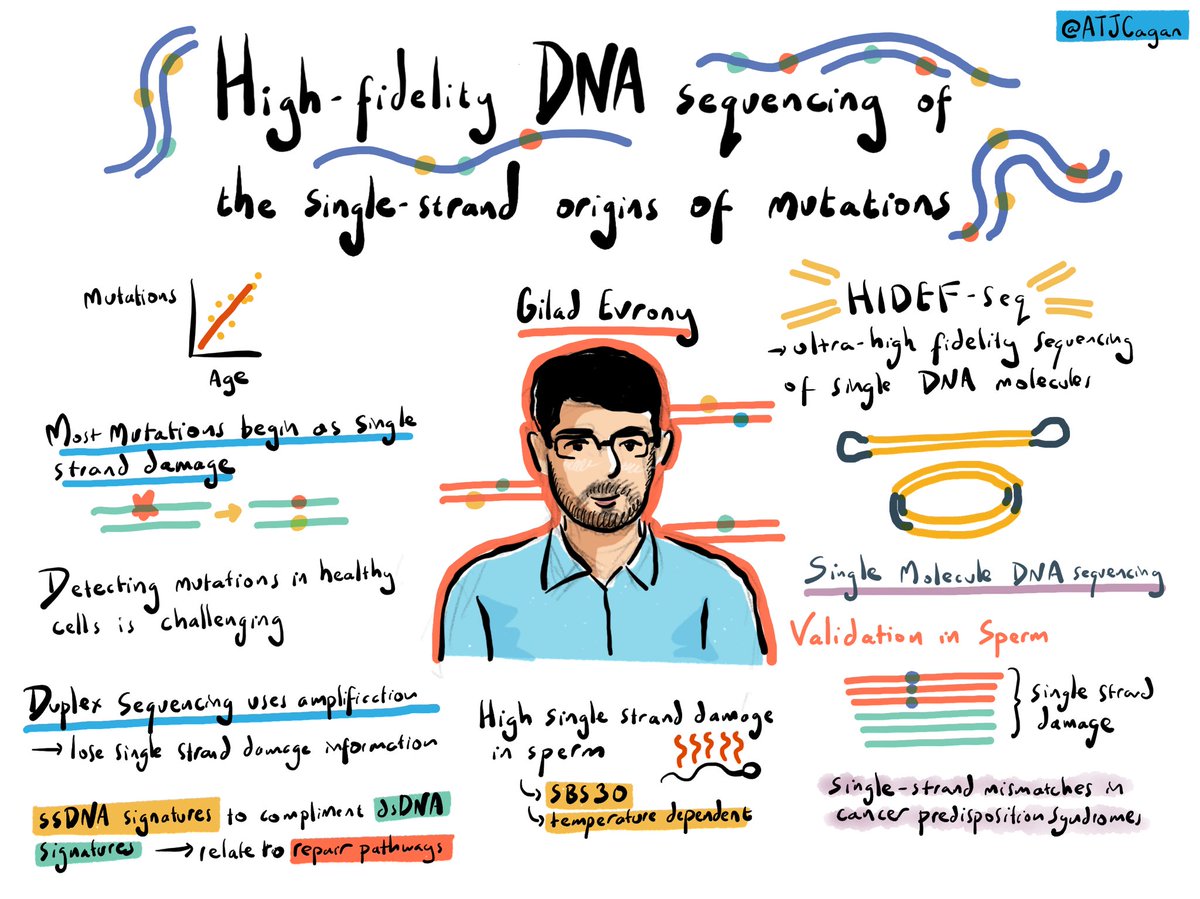 @ATJCagan
High-fidelity DNA sequencing of
the single-strand origins of mutations
Mutations
Age
Most Mutations begin as single
strand damage
Detecting mutations in healthy
cells is challenging
Duplex Sequencing uses amplification
→ lose single strand damage information
ssDNA signatures to compliment dsDNA
signatures → relate to repair pathways
Gilad Evrony
High single strand damage
in sperm
↳ SBS30
↳ temperature dependent
HIDEF-seq
→ ultra-high fidelity sequencing
of single DNA molecules
Single Molecule DNA sequencing
Validation in Sperm
single strand
damage
Single-strand mismatches in
cancer predisposition syndromes